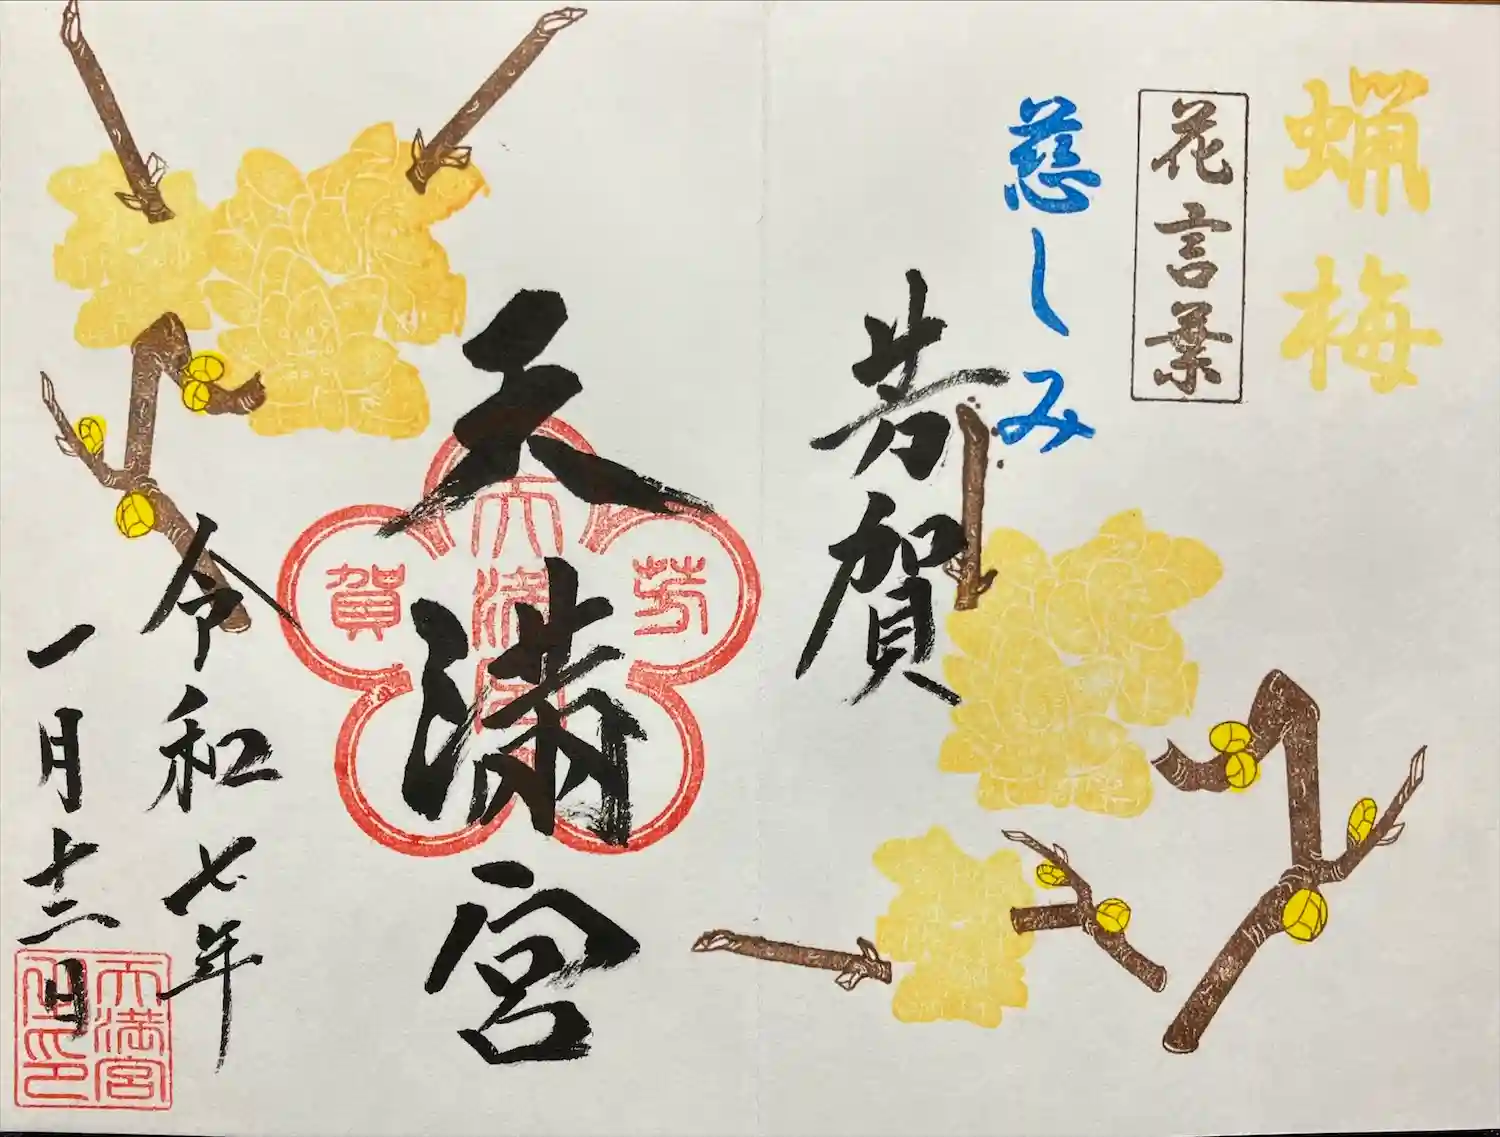 蝋梅
花言葉
慈しみ
芳賀
天満宮
芳
天満宮
賀
令和七年
一月十二日
天満宮